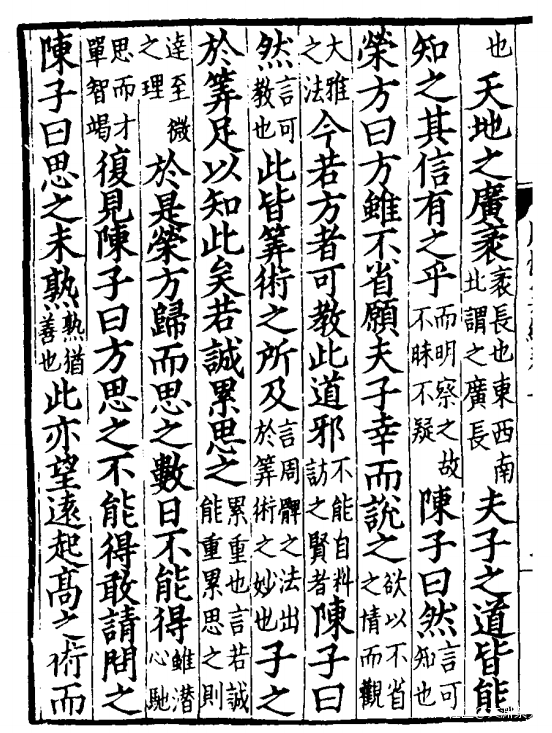 也天地之廣袤袤長也東西南北謂之廣長夫子之道皆能
知之其信有之乎而明察之故不昧不疑陳子曰然言可知也
榮方曰方雖不省願夫子幸而說之欲以不省之情而觀
大雅之法今若方者可教此道邪不能自料訪之賢者陳子曰
然言可教也此皆筭術之所及言周髀之法出於筭術之妙也子之
於筭足以知此矣若誠累思之累重也言若誠能重累思之則
逹至微之理於是榮方歸而思之數日不能得雖潛心馳
思而才單智竭復見陳子曰方思之不能得敢請問之
陳子曰思之未熟熟猶善也此亦望遠起髙之術而